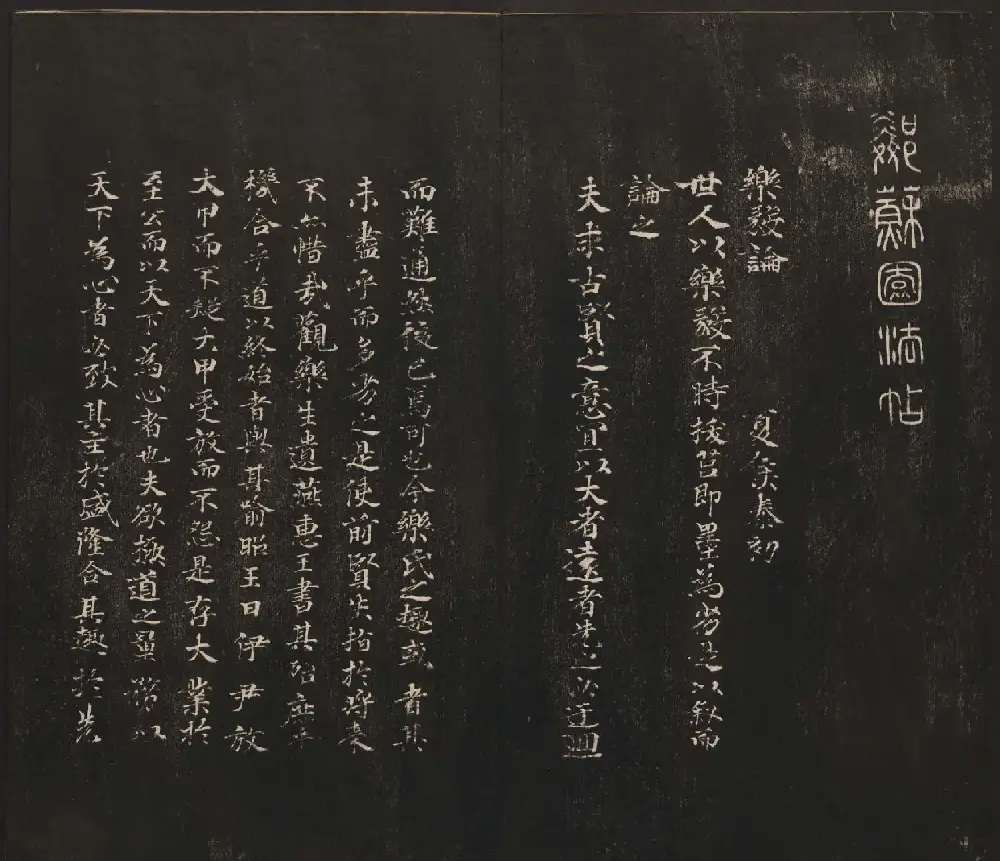 鄰蘇園法帖
樂毅論 夏侯泰初
世人以樂毅不時拔莒即墨為劣是以叙而
論之
夫求古賢之意宜以大者遠者先之必迂迴
而難通然後已焉可也今樂氏之趣或者其
未盡乎而多劣之是使前賢失指於將来
不亦惜哉觀樂生遺燕惠王書其殆庶乎
機合乎道以終始者與其喻昭王曰伊尹放
大甲而不疑大甲受放而不怨是存大業於
至公而以天下為心者也夫欲極道之量務以
天下為心者必致其主於盛隆合其趣於先